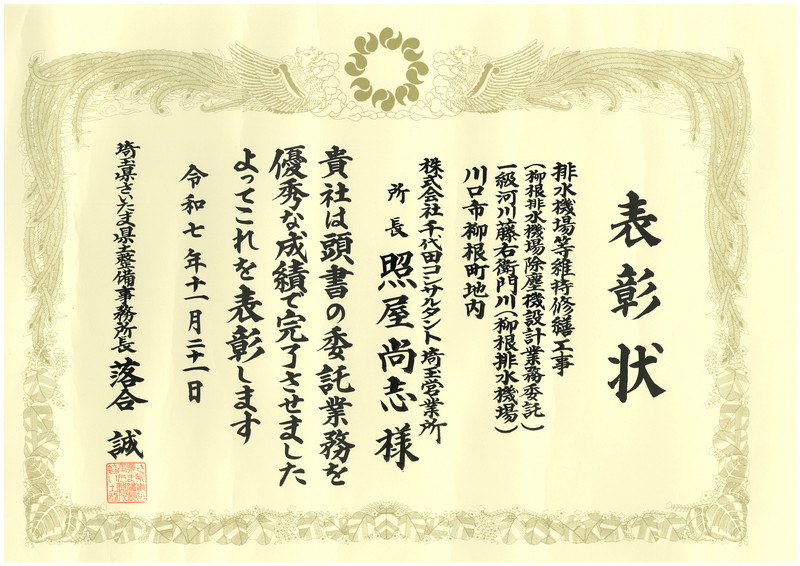 表彰状
排水機場等維持修繕工事
（柳根排水機場除塵機設計業務委託）
一級河川藤右衛門川（柳根排水機場）
川口市柳根町地内
株式会社千代田コンサルタント埼玉営業所
所長 照屋尚志様
貴社は頭書の委託業務を
優秀な成績で完了させました
よってこれを表彰します
令和七年十一月二十一日
埼玉県さいたま県土整備事務所長 落合誠